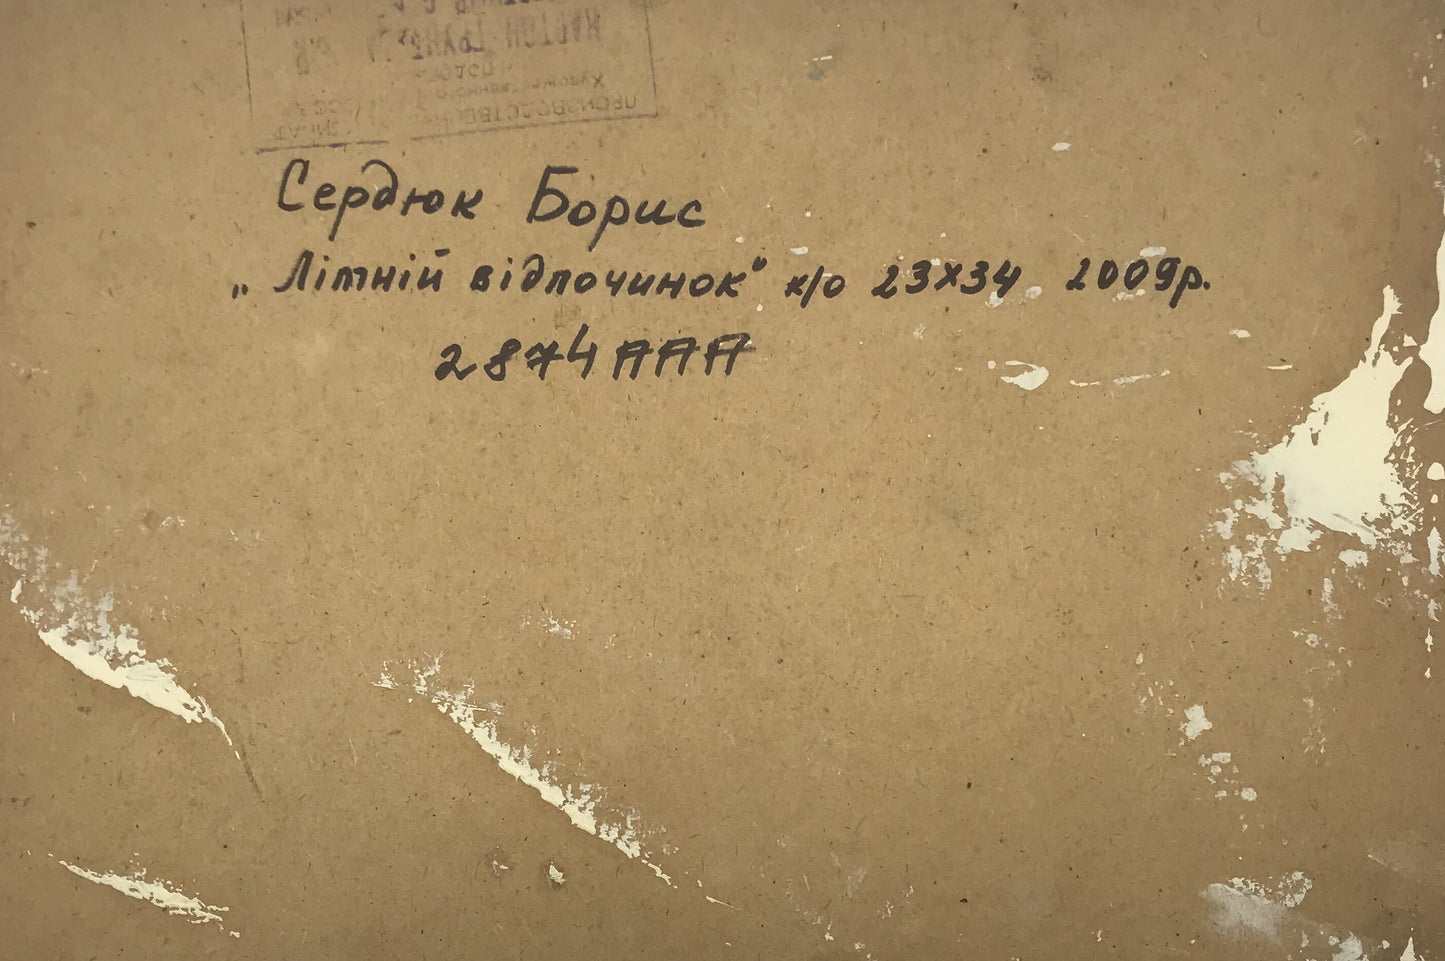 Сердюк Борис
„Літній відпочинок" к/о 23х34 2009р.
2874ААА